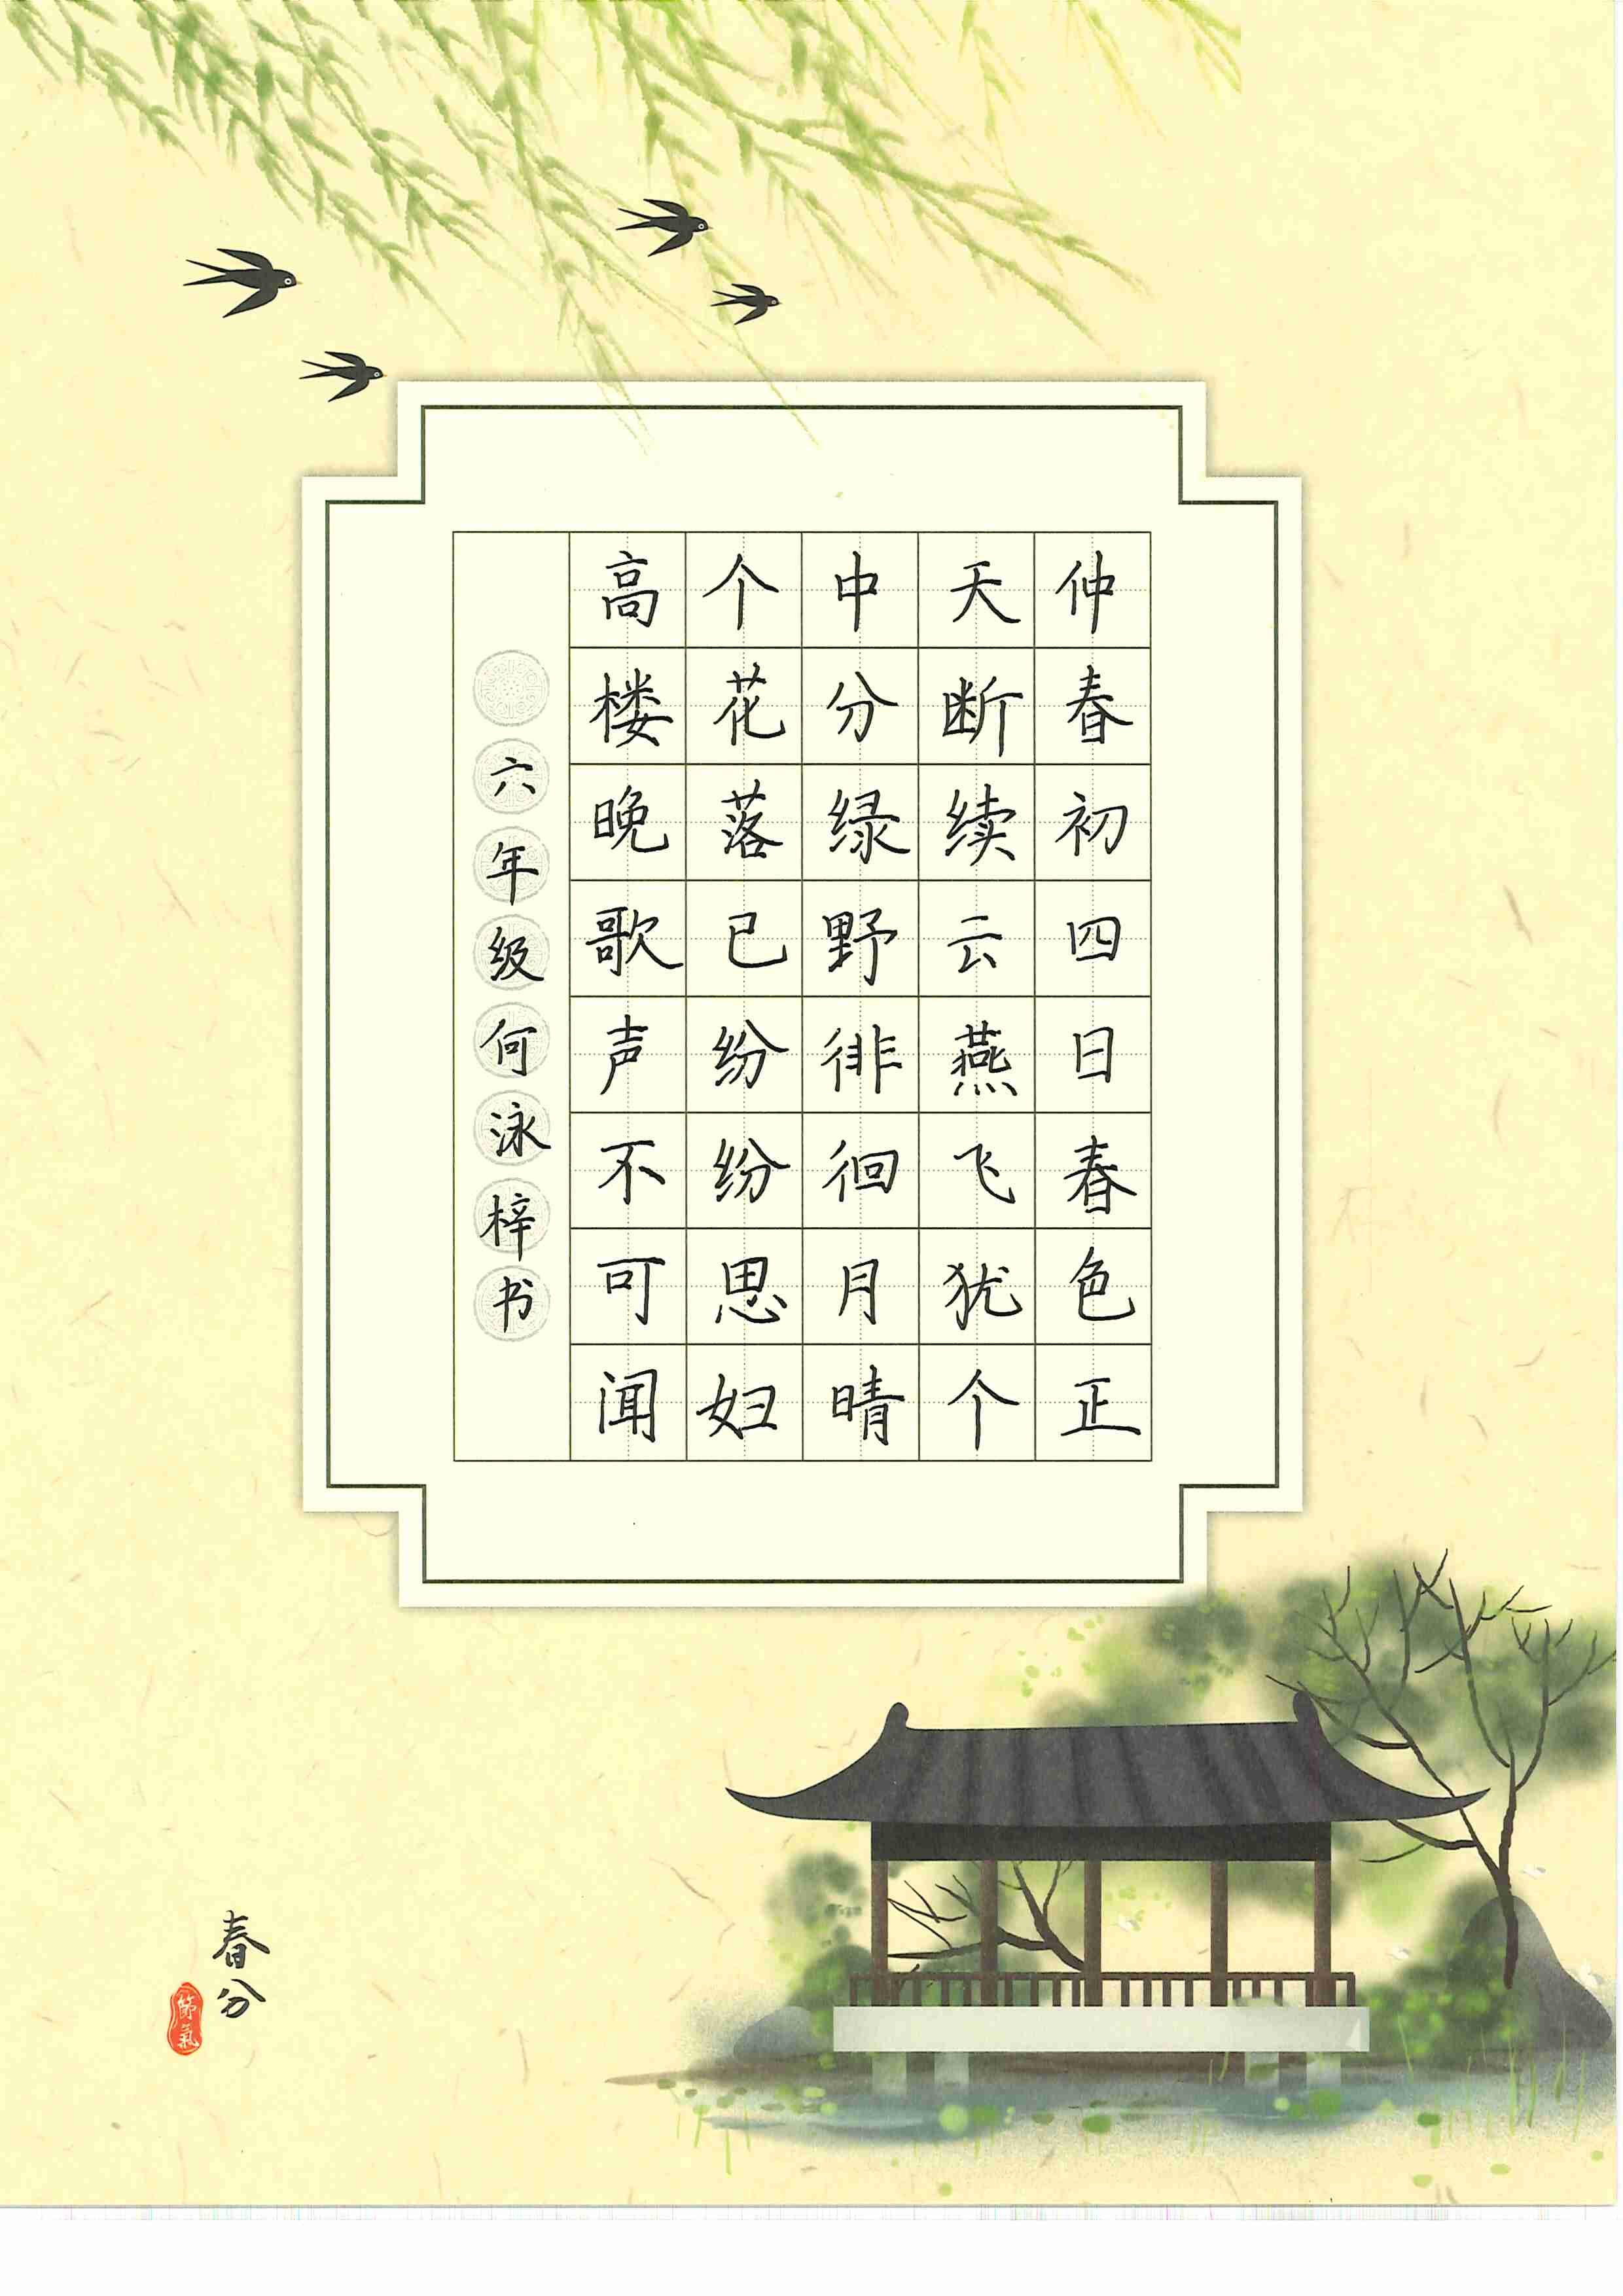 仲春初四日春色正
天断续云燕飞犹个
中分绿野徘徊月晴
个花落已纷纷思妇
高楼晚歌声不可闻
六年级何泳梓书
春分
節氣